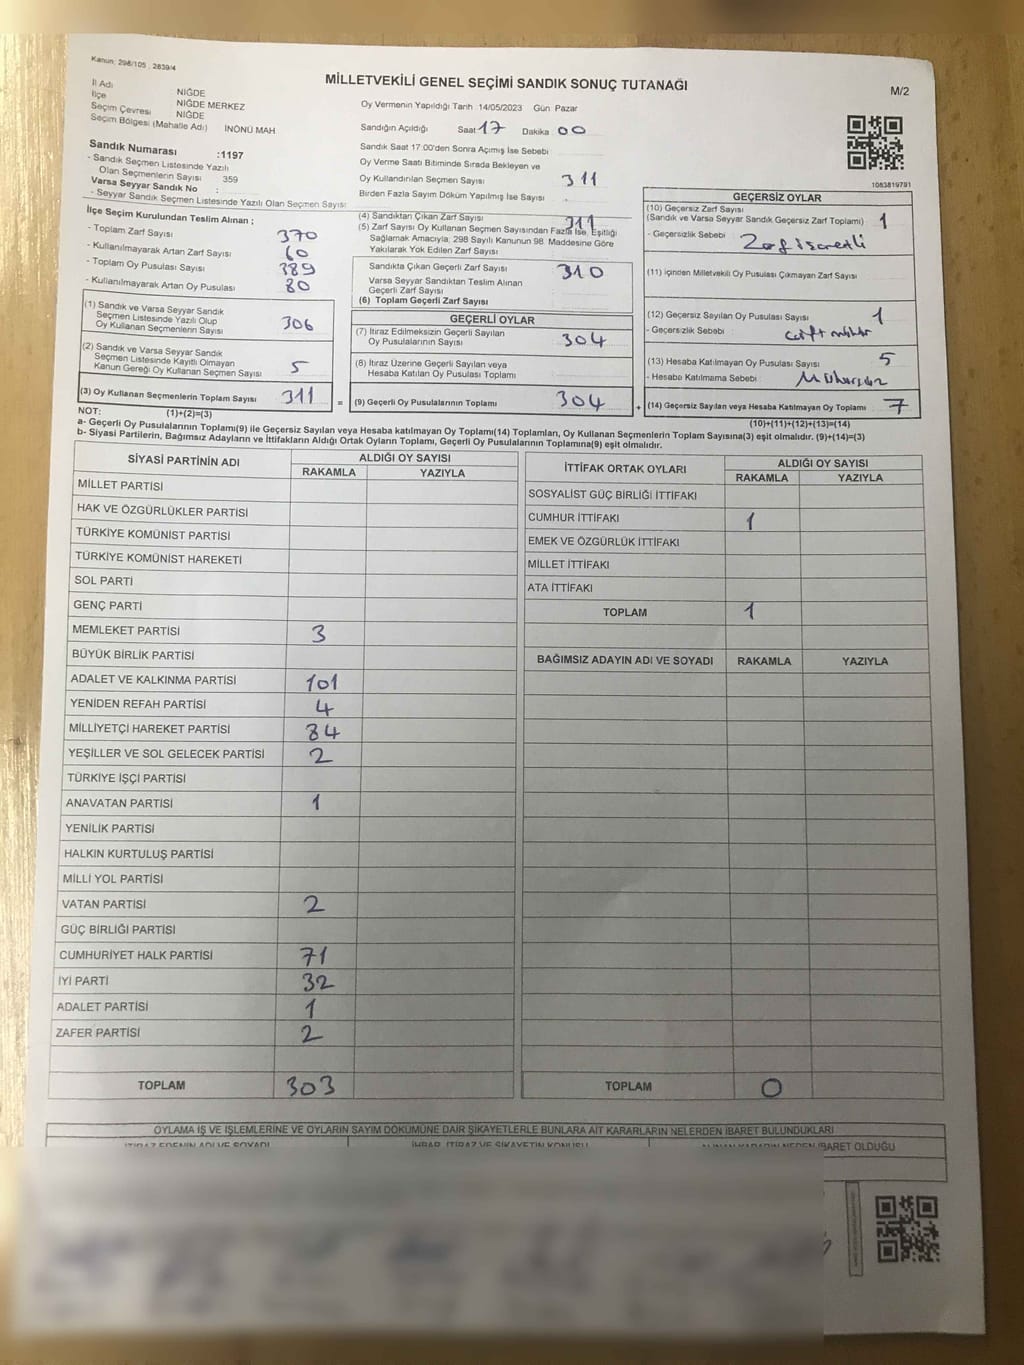 Kanun: 298/105 , 2839/4
MİLLETVEKİLİ GENEL SEÇİMİ SANDIK SONUÇ TUTANAĞI
M/2
İl Adı : NİĞDE
İlçe : NİĞDE MERKEZ
Seçim Çevresi : NİĞDE
Seçim Bölgesi (Mahalle Adı) : İNÖNÜ MAH
Sandık Numarası :1197
- Sandık Seçmen Listesinde Yazılı
Olan Seçmenlerin Sayısı 359
Varsa Seyyar Sandık No :
- Seyyar Sandık Listesinde Yazılı Olan Seçmen Sayısı
Oy Vermenin Yapıldığı Tarih : 14/05/2023 Gün: Pazar
Sandığın Açıldığı Saat 17 Dakika 00
Sandık Saat 17:00'den Sonra Açımış İse Sebebi
Oy Verme Saati Bitiminde Sırada Bekleyen ve
Oy Kullandırılan Seçmen Sayısı 311
Birden Fazla Sayım Döküm Yapılmış İse Sayısı
1083819791
İlçe Seçim Kurulundan Teslim Alınan ;
- Toplam Zarf Sayısı 370
- Kullanılmayarak Artan Zarf Sayısı 60
- Toplam Oy Pusulası Sayısı 389
- Kullanılmayarak Artan Oy Pusulası 80
(1) Sandık ve Varsa Seyyar Sandık
Seçmen Listesinde Yazılı Olup
Oy Kullanan Seçmenlerin Sayısı 306
(2) Sandık ve Varsa Seyyar Sandık
Seçmen Listesinde Kayıtlı Olmayan
Kanun Gereği Oy Kullanan Seçmen Sayısı 5
(3) Oy Kullanan Seçmenlerin Toplam Sayısı 311
(4) Sandıktan Çıkan Zarf Sayısı 311
(5) Zarf Sayısı Oy Kullanan Seçmen Sayısından Fazla İse, Eşitliği
Sağlamak Amacıyla, 298 Sayılı Kanunun 98. Maddesine Göre
Yakılarak Yok Edilen Zarf Sayısı
Sandıkta Çıkan Geçerli Zarf Sayısı 310
Varsa Seyyar Sandıktan Teslim Alınan
Geçerli Zarf Sayısı
(6) Toplam Geçerli Zarf Sayısı
GEÇERLİ OYLAR
(7) İtiraz Edilmeksizin Geçerli Sayılan
Oy Pusulalarının Sayısı 304
(8) İtiraz Üzerine Geçerli Sayılan veya
Hesaba Katılan Oy Pusulası Toplamı
= (9) Geçerli Oy Pusulalarının Toplamı 304
GEÇERSİZ OYLAR
(10) Geçersiz Zarf Sayısı
(Sandık ve Varsa Seyyar Sandık Geçersiz Zarf Toplamı) 1
- Geçersizlik Sebebi : Zarf işaretli
(11) İçinden Milletvekili Oy Pusulası Çıkmayan Zarf Sayısı
(12) Geçersiz Sayılan Oy Pusulası Sayısı 1
- Geçersizlik Sebebi : çift mühür
(13) Hesaba Katılmayan Oy Pusulası Sayısı 5
- Hesaba Katılmama Sebebi : Mühürsüz
+ (14) Geçersiz Sayılan veya Hesaba Katılmayan Oy Toplamı 7
NOT: (1)+(2)=(3)
(10)+(11)+(12)+(13)=(14)
a- Geçerli Oy Pusulalarının Toplamı(9) ile Geçersiz Sayılan veya Hesaba katılmayan Oy Toplamı(14) Toplamları, Oy Kullanan Seçmenlerin Toplam Sayısına(3) eşit olmalıdır. (9)+(14)=(3)
b- Siyasi Partilerin, Bağımsız Adayların ve İttifakların Aldığı Ortak Oyların Toplamı, Geçerli Oy Pusulalarının Toplamına(9) eşit olmalıdır.
SİYASİ PARTİNİN ADI ALDIĞI OY SAYISI
RAKAMLA YAZIYLA
MİLLET PARTİSİ
HAK VE ÖZGÜRLÜKLER PARTİSİ
TÜRKİYE KOMÜNİST PARTİSİ
TÜRKİYE KOMÜNİST HAREKETİ
SOL PARTİ
GENÇ PARTİ
MEMLEKET PARTİSİ 3
BÜYÜK BİRLİK PARTİSİ
ADALET VE KALKINMA PARTİSİ 101
YENİDEN REFAH PARTİSİ 4
MİLLİYETÇİ HAREKET PARTİSİ 84
YEŞİLLER VE SOL GELECEK PARTİSİ 2
TÜRKİYE İŞÇİ PARTİSİ
ANAVATAN PARTİSİ 1
YENİLİK PARTİSİ
HALKIN KURTULUŞ PARTİSİ
MİLLİ YOL PARTİSİ
VATAN PARTİSİ 2
GÜÇ BİRLİĞİ PARTİSİ
CUMHURİYET HALK PARTİSİ 71
İYİ PARTİ 32
ADALET PARTİSİ 1
ZAFER PARTİSİ 2
TOPLAM 303
İTTİFAK ORTAK OYLARI ALDIĞI OY SAYISI
RAKAMLA YAZIYLA
SOSYALİST GÜÇ BİRLİĞİ İTTİFAKI
CUMHUR İTTİFAKI 1
EMEK VE ÖZGÜRLÜK İTTİFAKI
MİLLET İTTİFAKI
ATA İTTİFAKI
TOPLAM 1
BAĞIMSIZ ADAYIN ADI VE SOYADI RAKAMLA YAZIYLA
TOPLAM 0
OYLAMA İŞ VE İŞLEMLERİNE VE OYLARIN SAYIM DÖKÜMÜNE DAİR ŞİKAYETLERLE BUNLARA AİT KARARLARIN NELERDEN İBARET BULUNDUKLARI
İTİRAZ EDENİN ADI VE SOYADI İHBAR, İTİRAZ VE ŞİKAYETİN KONUSU ALINAN KARARIN NEDEN İBARET OLDUĞU